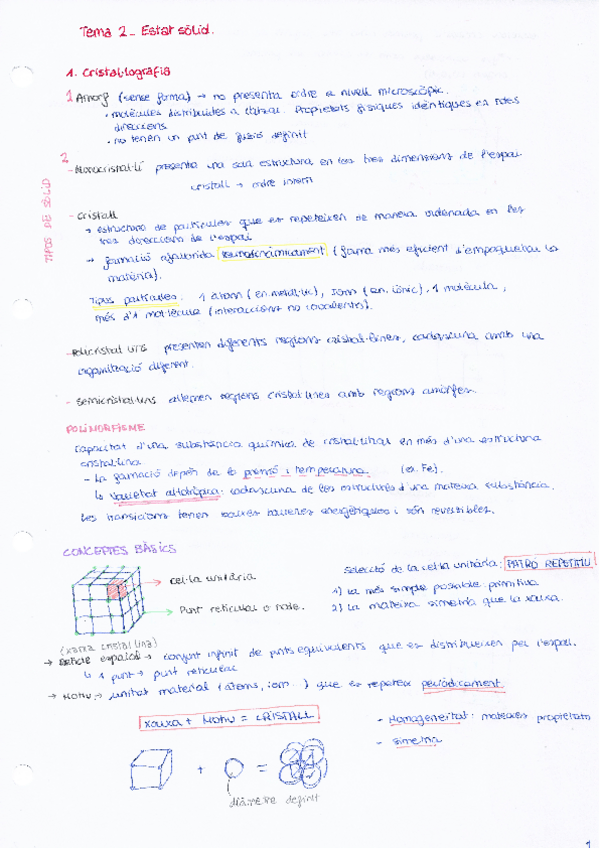 Tema 2 - Estat sòlid.
1. Cristal·lografia
1 Amorf (sense forma) → no presenta ordre a nivell microscòpic.
· molècules distribuides a l'atzar. Propietats físiques idèntiques en totes
direccions.
· no tenen un punt de fusió definit
TIPOS DE SÒLID
2
- Monocristal·lí presenta una sola estructura en les tres dimensions de l'espai
cristall → ordre intern
- Cristall
→ estructura de partícules que es repeteixen de manera ordenada en les
tres direccions de l'espai
→ formació afavorida termodinàmicament (forma més eficient d'empaquetar la
matèria).
Tipus partícules. 1 àtom (en. metàl·lic), Ions (en. iònic), 1 molècula,
més d'1 mol·lècula (interaccions no covalents).
- Policristal·lins presenten diferents regions cristal·lines, cadascuna amb una
organització diferent.
- Semicristal·lins alternen regions cristal·lines amb regions amorfes.
POLIMORFISME
Capacitat d'una substància química de cristal·litzar en més d'una estructura
cristal·lina.
- La formació depèn de la pressió i temperatura (ex. Fe).
↳ Varietat al·lotròpica: cadascuna de les estructures d'una mateixa substància.
Les transicions tenen baixes barreres energètiques i són reversibles.
CONCEPTES BÀSICS
cel·la unitària
Punt reticular o node.
Selecció de la cel·la unitària: PATRÓ REPETITIU
1) La més simple possible: primitiva
2) La mateixa simetria que la xarxa.
(xarxa cristal·lina)
→ Reticle espaial → conjunt infinit de punts equivalents que es distribueixen per l'espai.
↳ 1 punt → punt reticular
→ Motiu → unitat material (àtoms, ions..) que es repeteix periòdicament
xarxa + Motiu = CRISTALL
- Homogeneïtat: mateixes propietats
- simetria
+ =
diàmetre definit
1